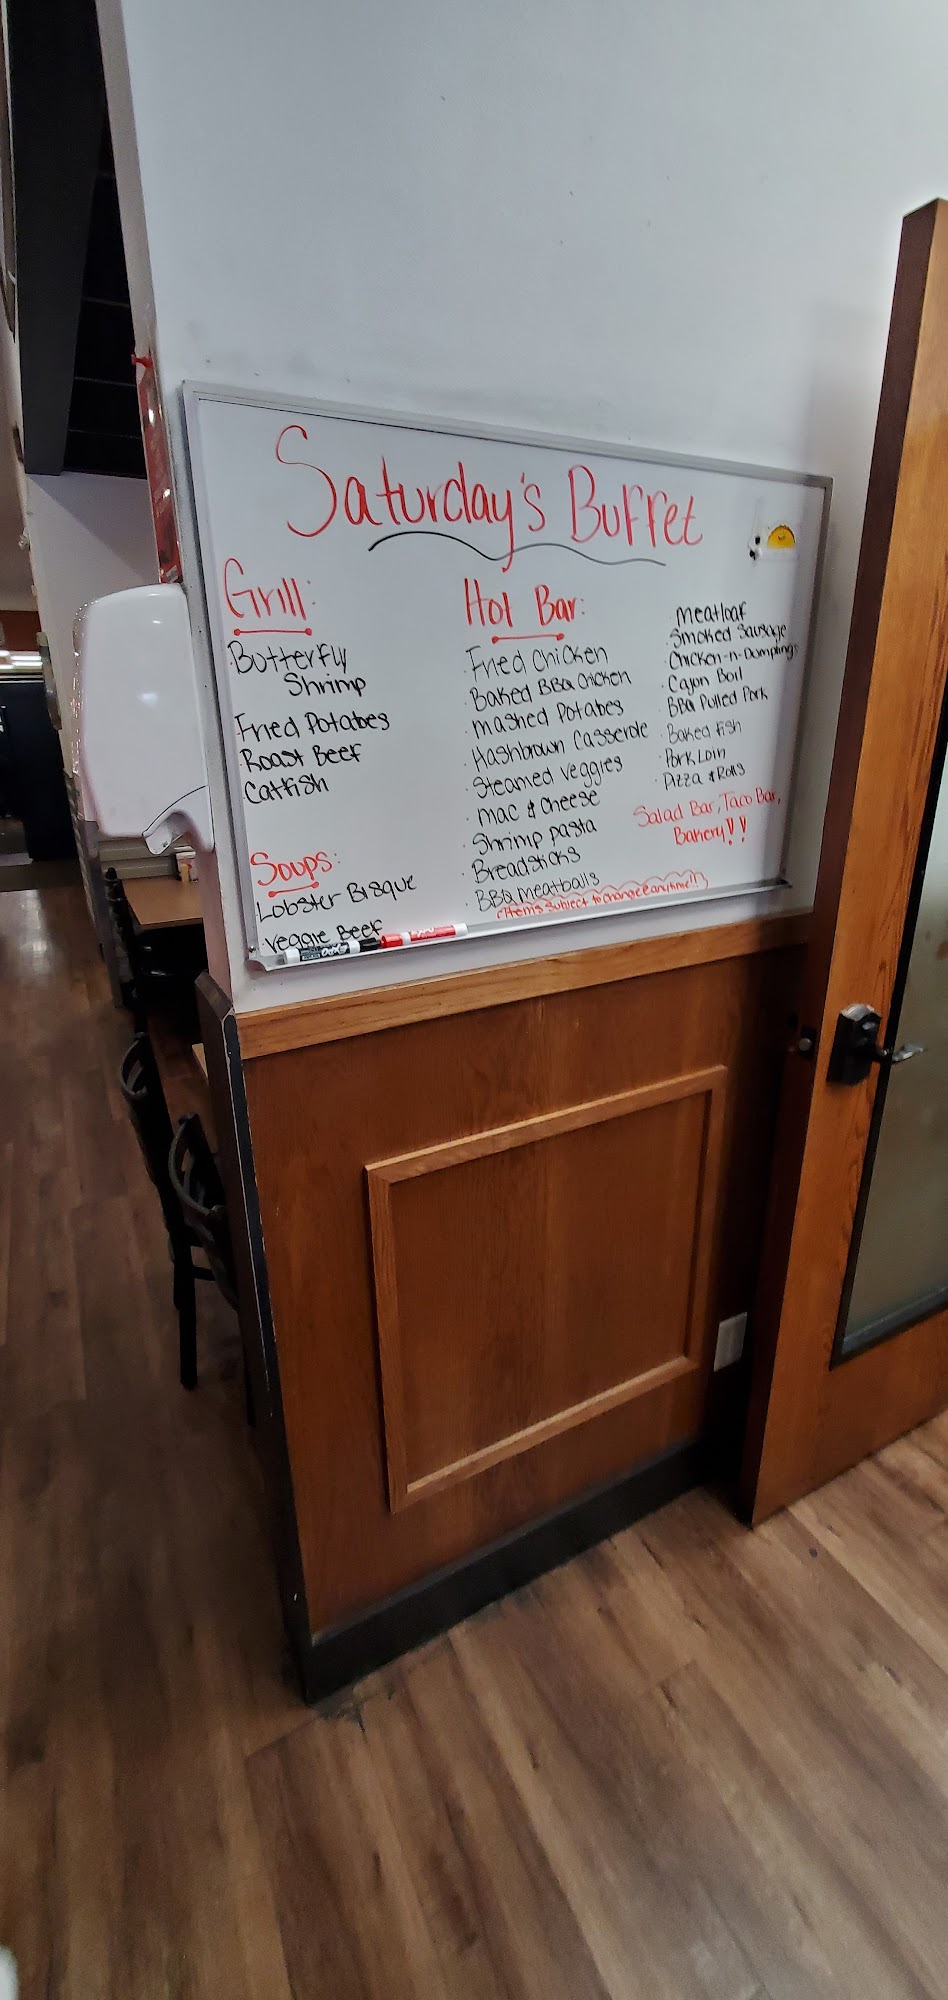 Saturday's Buffet
Grill:
Butterfly
Shrimp
Fried Potatoes
Roast Beef
Catfish
Soups:
Lobster Bisque
Veggie Beef
Hot Bar:
Fried Chicken
Baked BBQ Chicken
Mashed Potatoes
Hashbrown Casserole
Steamed Veggies
Mac & Cheese
Shrimp Pasta
Breadsticks
BBQ Meatballs
Meatloaf
Smoked Sausage
Chicken-n-Dumplings
Cajun Boil
BBQ Pulled Pork
Baked Fish
Pork Loin
Pizza & Rolls
Salad Bar, Taco Bar,
Bakery!!
*Items Subject to change @ anytime!!